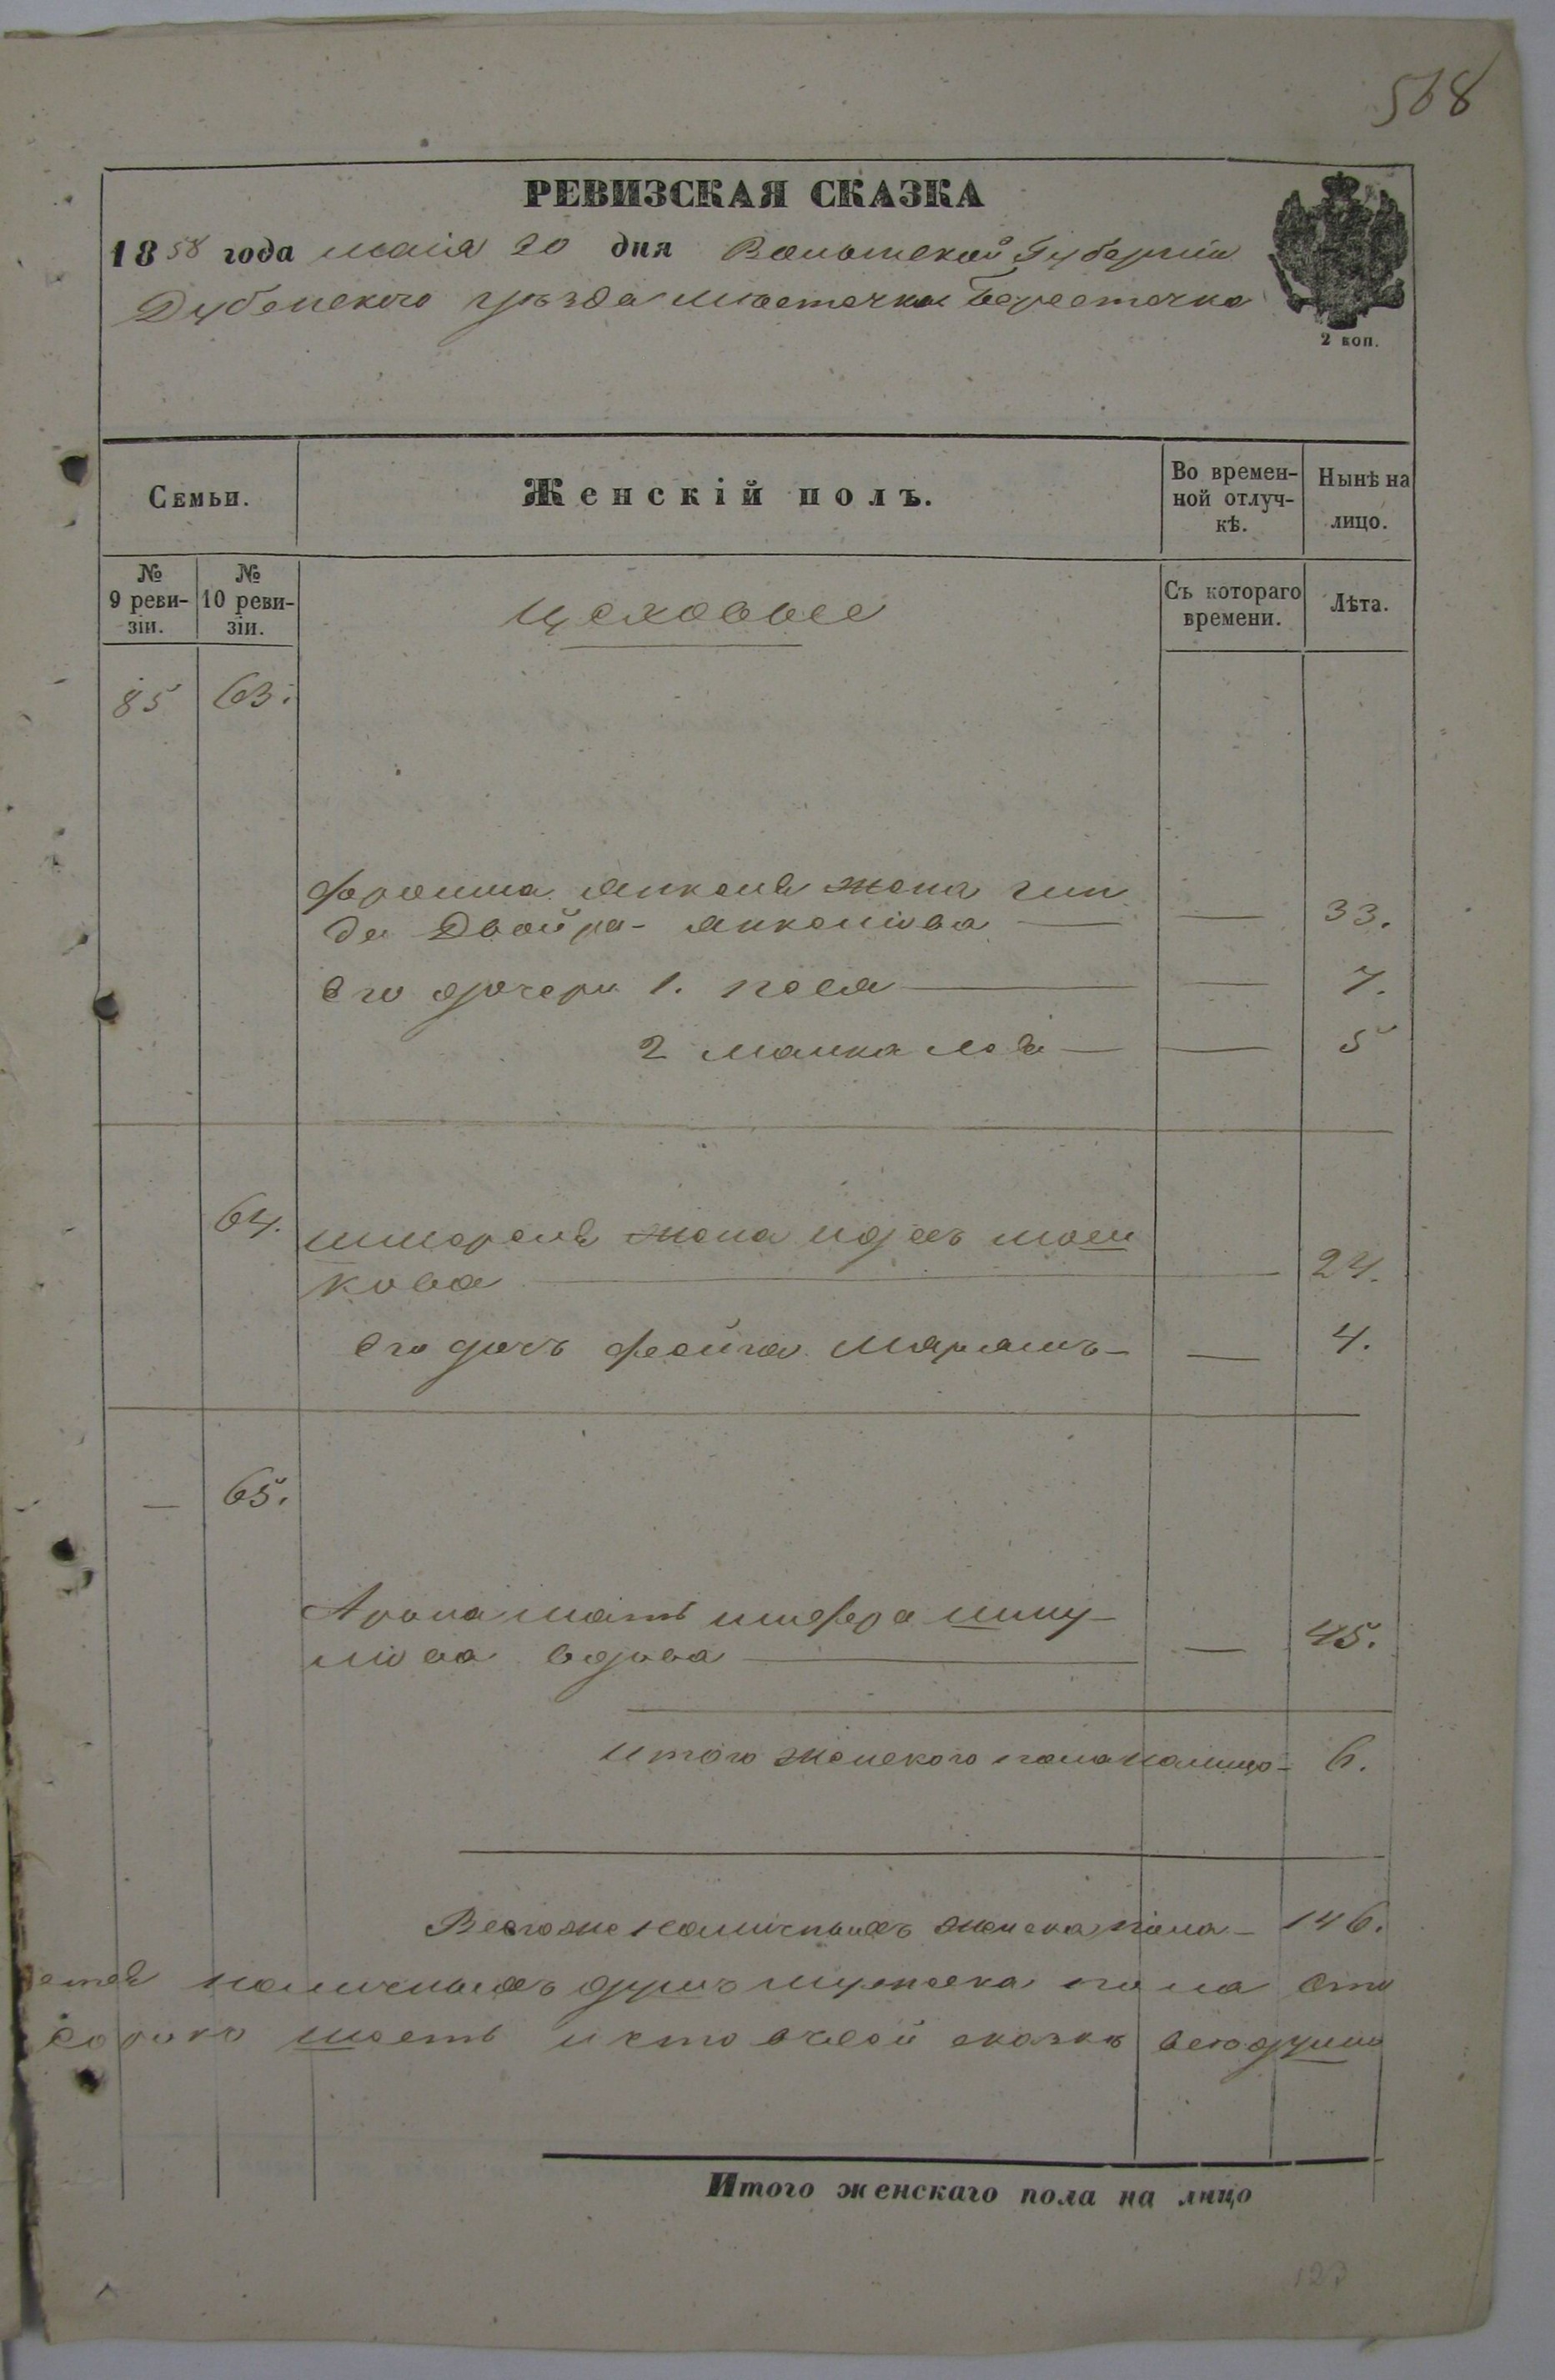 568
РЕВИЗСКАЯ СКАЗКА
1858 года маія 20 дня Волынской Губерніи
Дубенского уѣзда мѣстечка Берестечка
2 коп.
Семьи.
Женскій полъ.
Во времен-
ной отлуч-
кѣ.
Нынѣ на
лицо.
№
9 реви-
зіи.
№
10 реви-
зіи.
Цеховые
Съ котораго
времени.
Лѣта.
85 63.
Фроима Янкеля жена Гин
да Двойра Янкелiова — — 33.
Его дочери 1. Песя — — 7.
2 Малка — — 5
64. Шмереля жена Идесъ Мош
кова — 24.
Его дочь Фейга Маріамъ — — 4.
— 65.
Арона мать Шифра Шму
лiова вдова — — 45.
Итого женского пола налицо — 6.
Всего же наличныхъ женска пола — 146.
наличныхъ душъ мужеска пола сто
сорокъ шесть и что в сей сказкѣ все души
Итого женскаго пола на лицо
123